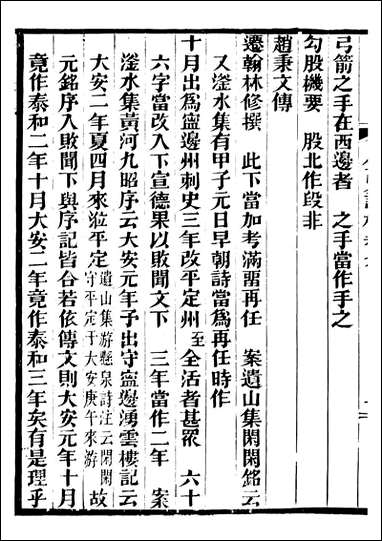 弓箭之手在西邊者　之手當作手之
勾股機要　股北作段非
趙秉文傳
遷翰林修撰　此下當加考滿需再任　案遺山集閑閑銘云
又滏水集有甲子元日早朝詩當為再任時作
十月出為寧邊州刺史三年改平定州至全活者甚眾　六十
六字當改入下宣德果以敗聞文下　三年當作二年　案
滏水集黃河九昭序云大安元年子出守寧邊湧雲樓記云
大安二年夏四月來涖平定遺山集游懸泉詩注云閑閑守平定于大安庚午來游故
元銘序入敗聞下與序記皆合若依傳文則大安元年十月
竟作泰和二年十月大安二年竟作泰和三年矣有是理乎